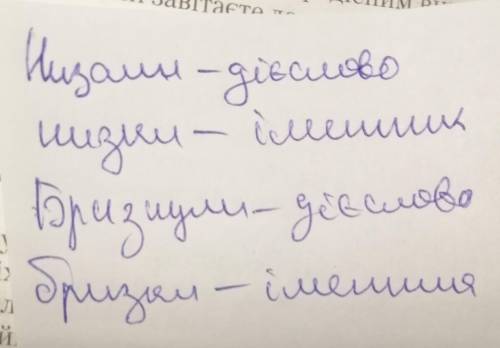 завітаєте
Низали – дієслово
низки – іменник
Бризнули – дієслово
бризки – іменник